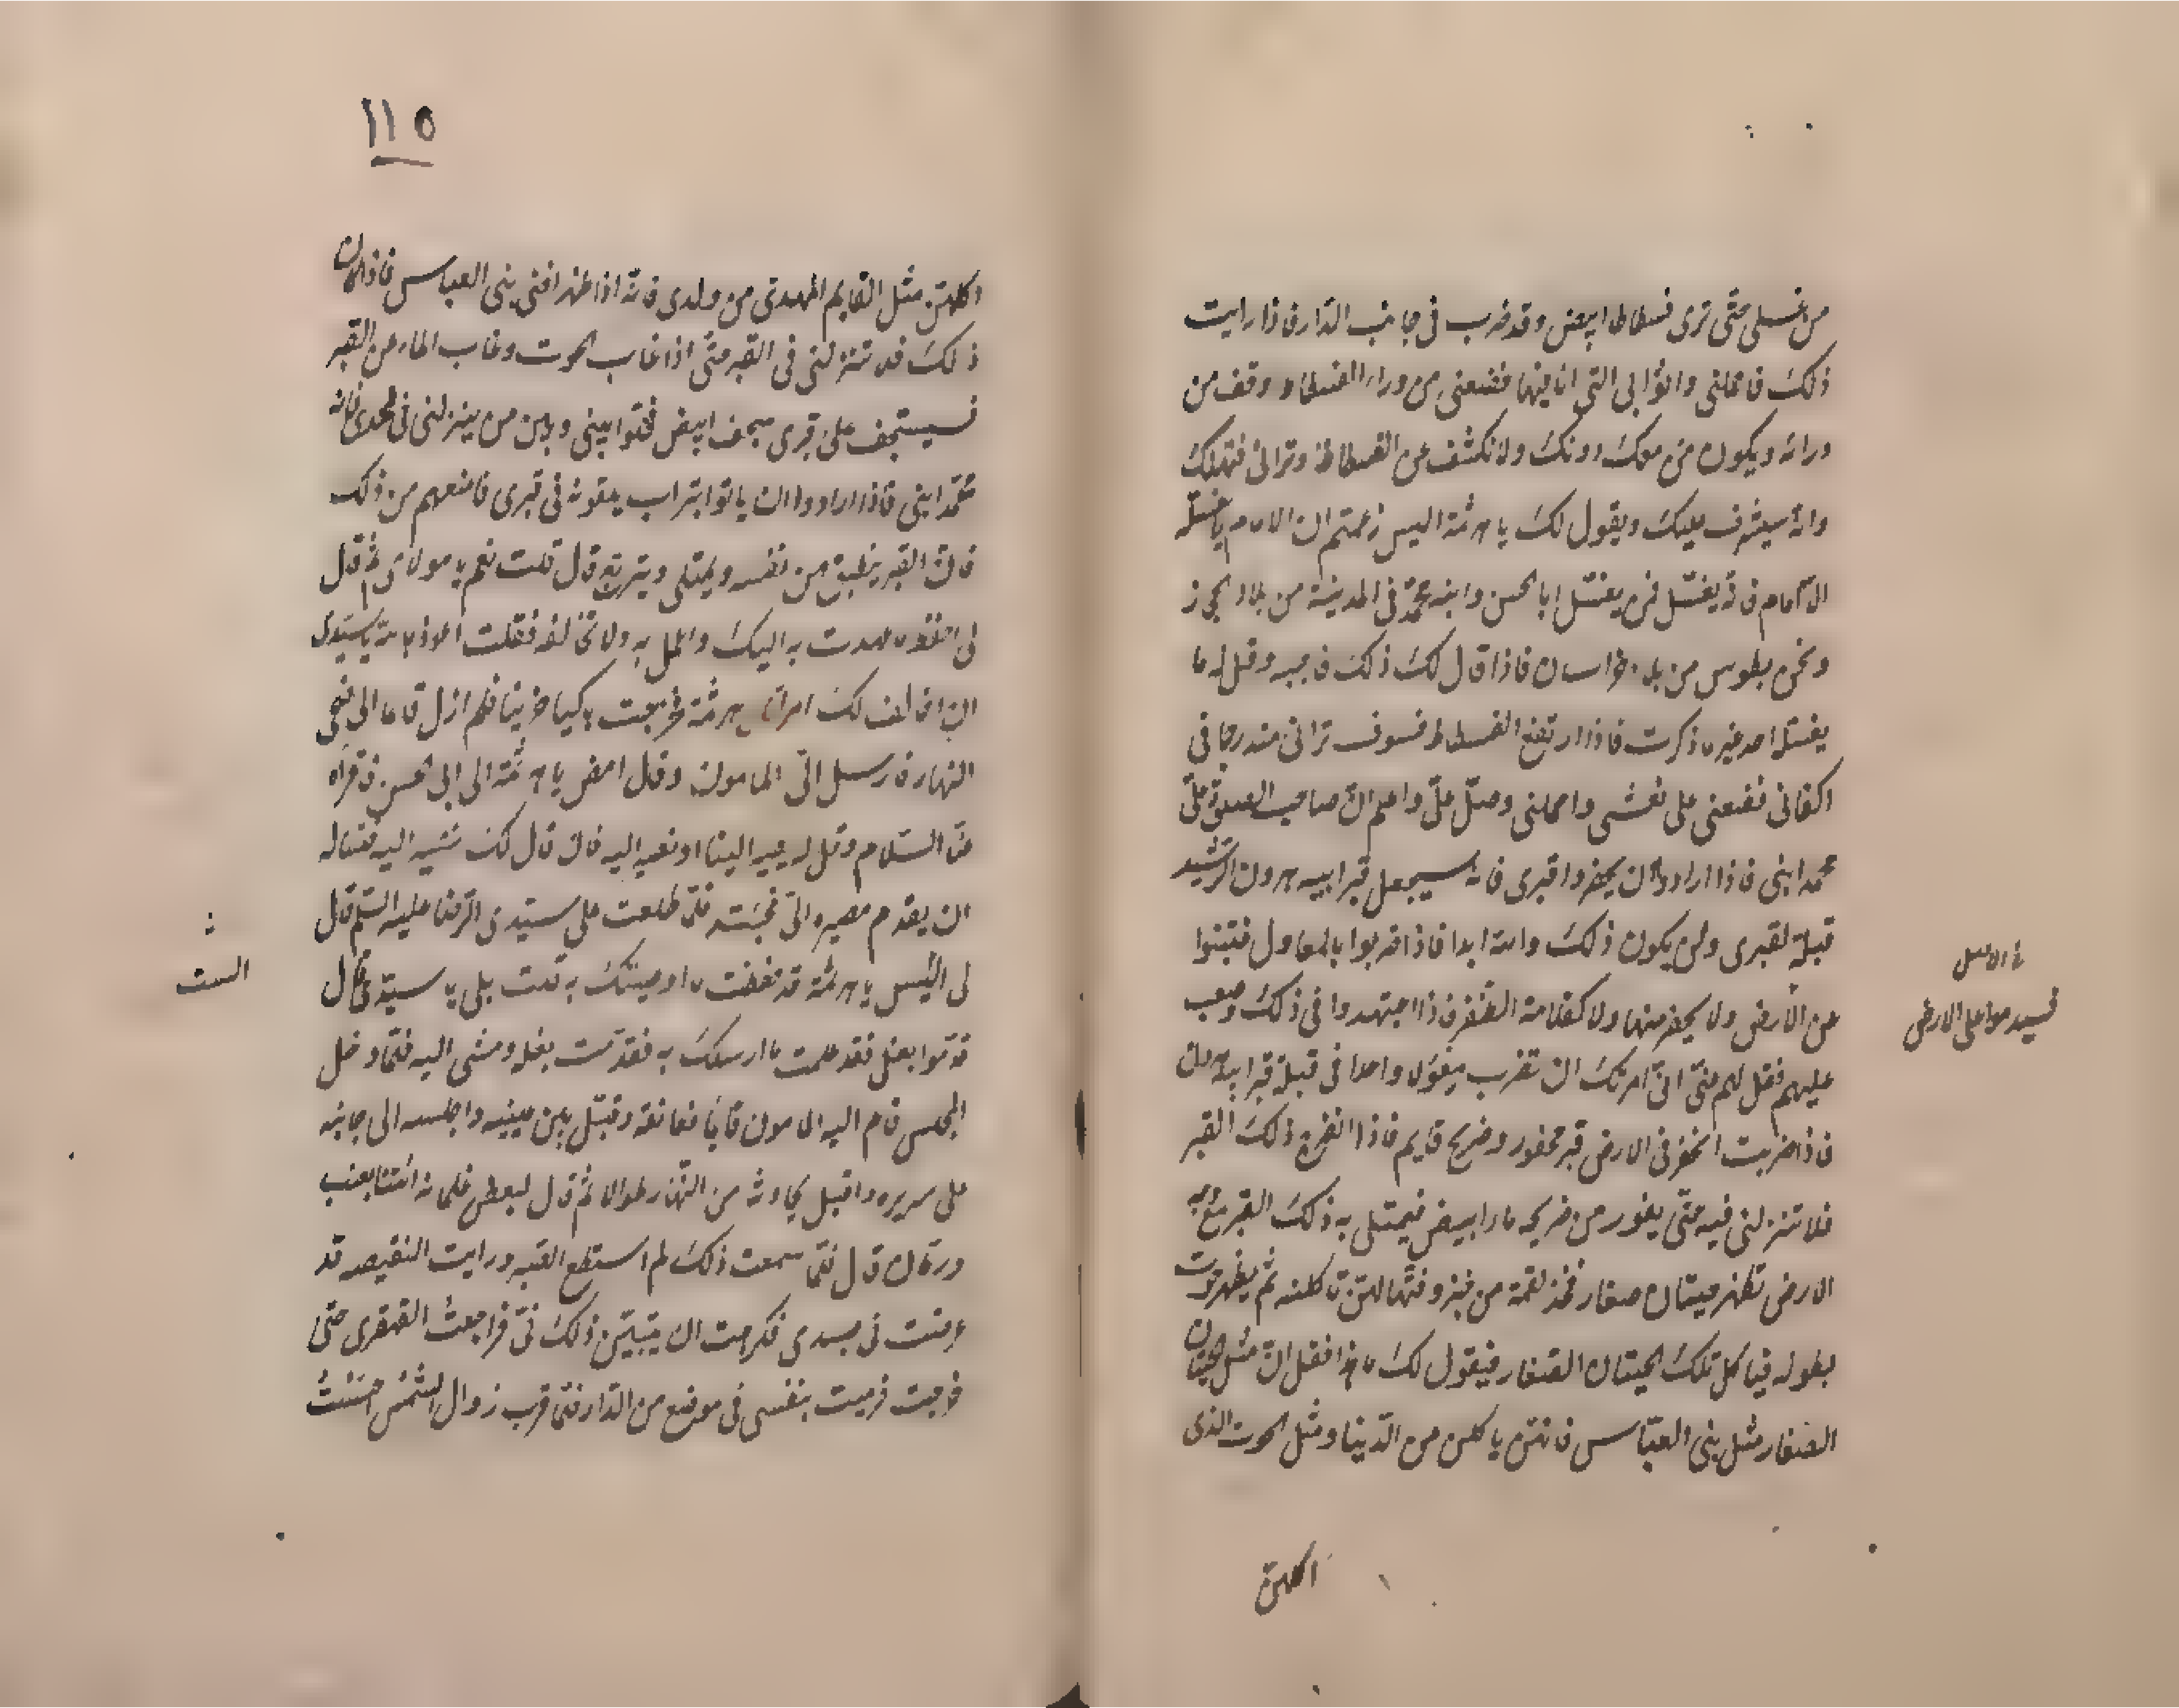 من غسلي حتى ترى فسطاطا ابيض وقد ضرب في جانب الدار فاذا رايت
ذلك فاحملني واثوابي التي انا فيها فضعني من وراء الفسطاط وقف من
ورائه ويكون من معك دونك ولا تكشف عن الفسطاط وتراني فتهلك
وانه سيشرف عليك ويقول لك يا هرثمة اليس زعمتم ان الامام لا يغسله
الا امام فانه يغسل فمن يغسل ابا الحسن وابنه محمد في المدينة من بلاد الحجاز
ونحن بطوس من بلد خراسان فاذا قال لك ذلك فاجبه وقل له ما
يغسله احد غير ما ذكرت فاذا ارتفع الفسطاط فسوف تراني مندرجا في
اكفاني فضعني على نعشى واحملني وصلّ علىّ واعلم انّ صاحب الصلوة علىّ
محمد ابني فاذا ارادوا ان يحفروا قبرى فانه سيجعل قبر ابيه هرون الرشيد
قبلة لقبرى ولن يكون ذلك والله ابدا فاذا ضربوا بالمعاول فتبنوا
عن الأرض ولا يحفر منها ولا كقلامة الظفر فاذا اجتهدوا في ذلك وصعب
عليهم فقل لهم عنّى انّى امرتك ان تضرب معولا واحدا في قبلة قبر ابيه هرون
فاذا ضربت انحفر في الارض قبر محفور وضريح قايم فاذا انفرج ذلك القبر
فلا تنزلني فيه حتّى يفور من ضريحه ماء ابيض فيمتلى به ذلك القبر مع وجه
الارض تظهر حيتان صغار فخذ لقمة من خبز وفتّها لهنّ تاكلنه ثم يظهر حوت
بطوله فياكل تلك الحيتان الصغار فيقول لك ما هذا فقل انّ مثل الحيتان
الصغار مثل بنى العبّاس فانهنّ ياكلن من الدّنيا ومثل الحوت الذى
اكلهنّ
في الاصل
الارض
١١٥
اكلهنّ مثل القايم المهدى من ولدى فانه اذا ظهر افنى بنى العباس فاذا كان
ذلك فلا تنزلنى في القبر حتّى اذا غاب الحوت وغاب الماء من القبر
فسيسجف على قبرى سجف ابيض فخلّوا بينى وبين من ينزلنى في لحدى فانه
محمد ابنى فاذا ارادوا ان ياتوا بتراب يلقونه في قبرى فامنعهم من ذلك
فان القبر ينطبق من نفسه ويمتلى ويتربع قال قلت نعم يا مولاى ثم قال
لى احفظ ما عهدت به اليك واعمل به ولا تخالفه فقلت اعوذ بالله يا سيّدى
ان اخالف لك امرا قال هرثمة فخرجت باكيا حزينا فلم ازل قاعدا الى ضحى
النهار فارسل الىّ المامون وقال امض يا هرثمة الى ابى الحسن فاقراه
منّا السّلام وقل له يصير الينا او نصير اليه فان قال لك نسير اليه فتساله
ان يقدم مصيره الىّ فجئته فلما طلعت على سيّدى الرّضا عليه السّلم قال
لى أليس يا هرثمة قد حفظت ما اوصيتك به قلت بلى يا سيّدى قال
قدّموا بغلى فقد علمت ما ارسلك به فقدّمت بغله ومشى اليه فلمّا دخل
المجلس قام اليه المامون قايما فعانقه وقبّل بين عينيه واجلسه الى جانبه
على سريره واقبل يحادثه من النّهار طوالا ثم قال لبعض غلمانه ائتنا بعنب
ورمّان قال فلمّا سمعت ذلك لم استطع الصبر ورايت النفيضه قد
عرضت في جسدى فكرهت ان يتبيّن ذلك فىّ فراجعت القهقرى حتّى
خرجت فرميت بنفسى في موضع من الدّار فلمّا قرب زوال الشّمس احسست